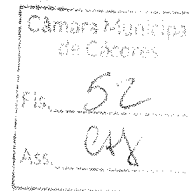 Câmara Municipa
de Cáceres
Fls. 52
Ass.